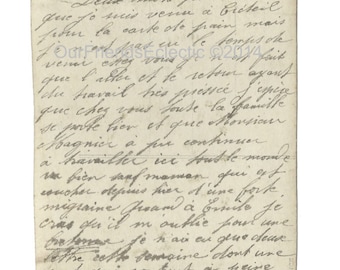 Deux mots p
que je suis venu à Créteil
pour la carte de pain mais
je n'ai eu le temps de
venir chez vous je n'ai fait
OurFriendsEclectic ©2014
que l'aller et le retour ayant
du travail très pressée j'espère
que chez vous toute la famille
se porte bien et que Monsieur
Magnier a pu continuer
à travailler ici tout le monde
va bien sauf maman qui est
couchée depuis hier d'une forte
migraine quand à Emile je
crois qu'il m'oublie pour une
je n'ai eu que deux
lettre cette semaine dont une
à peine